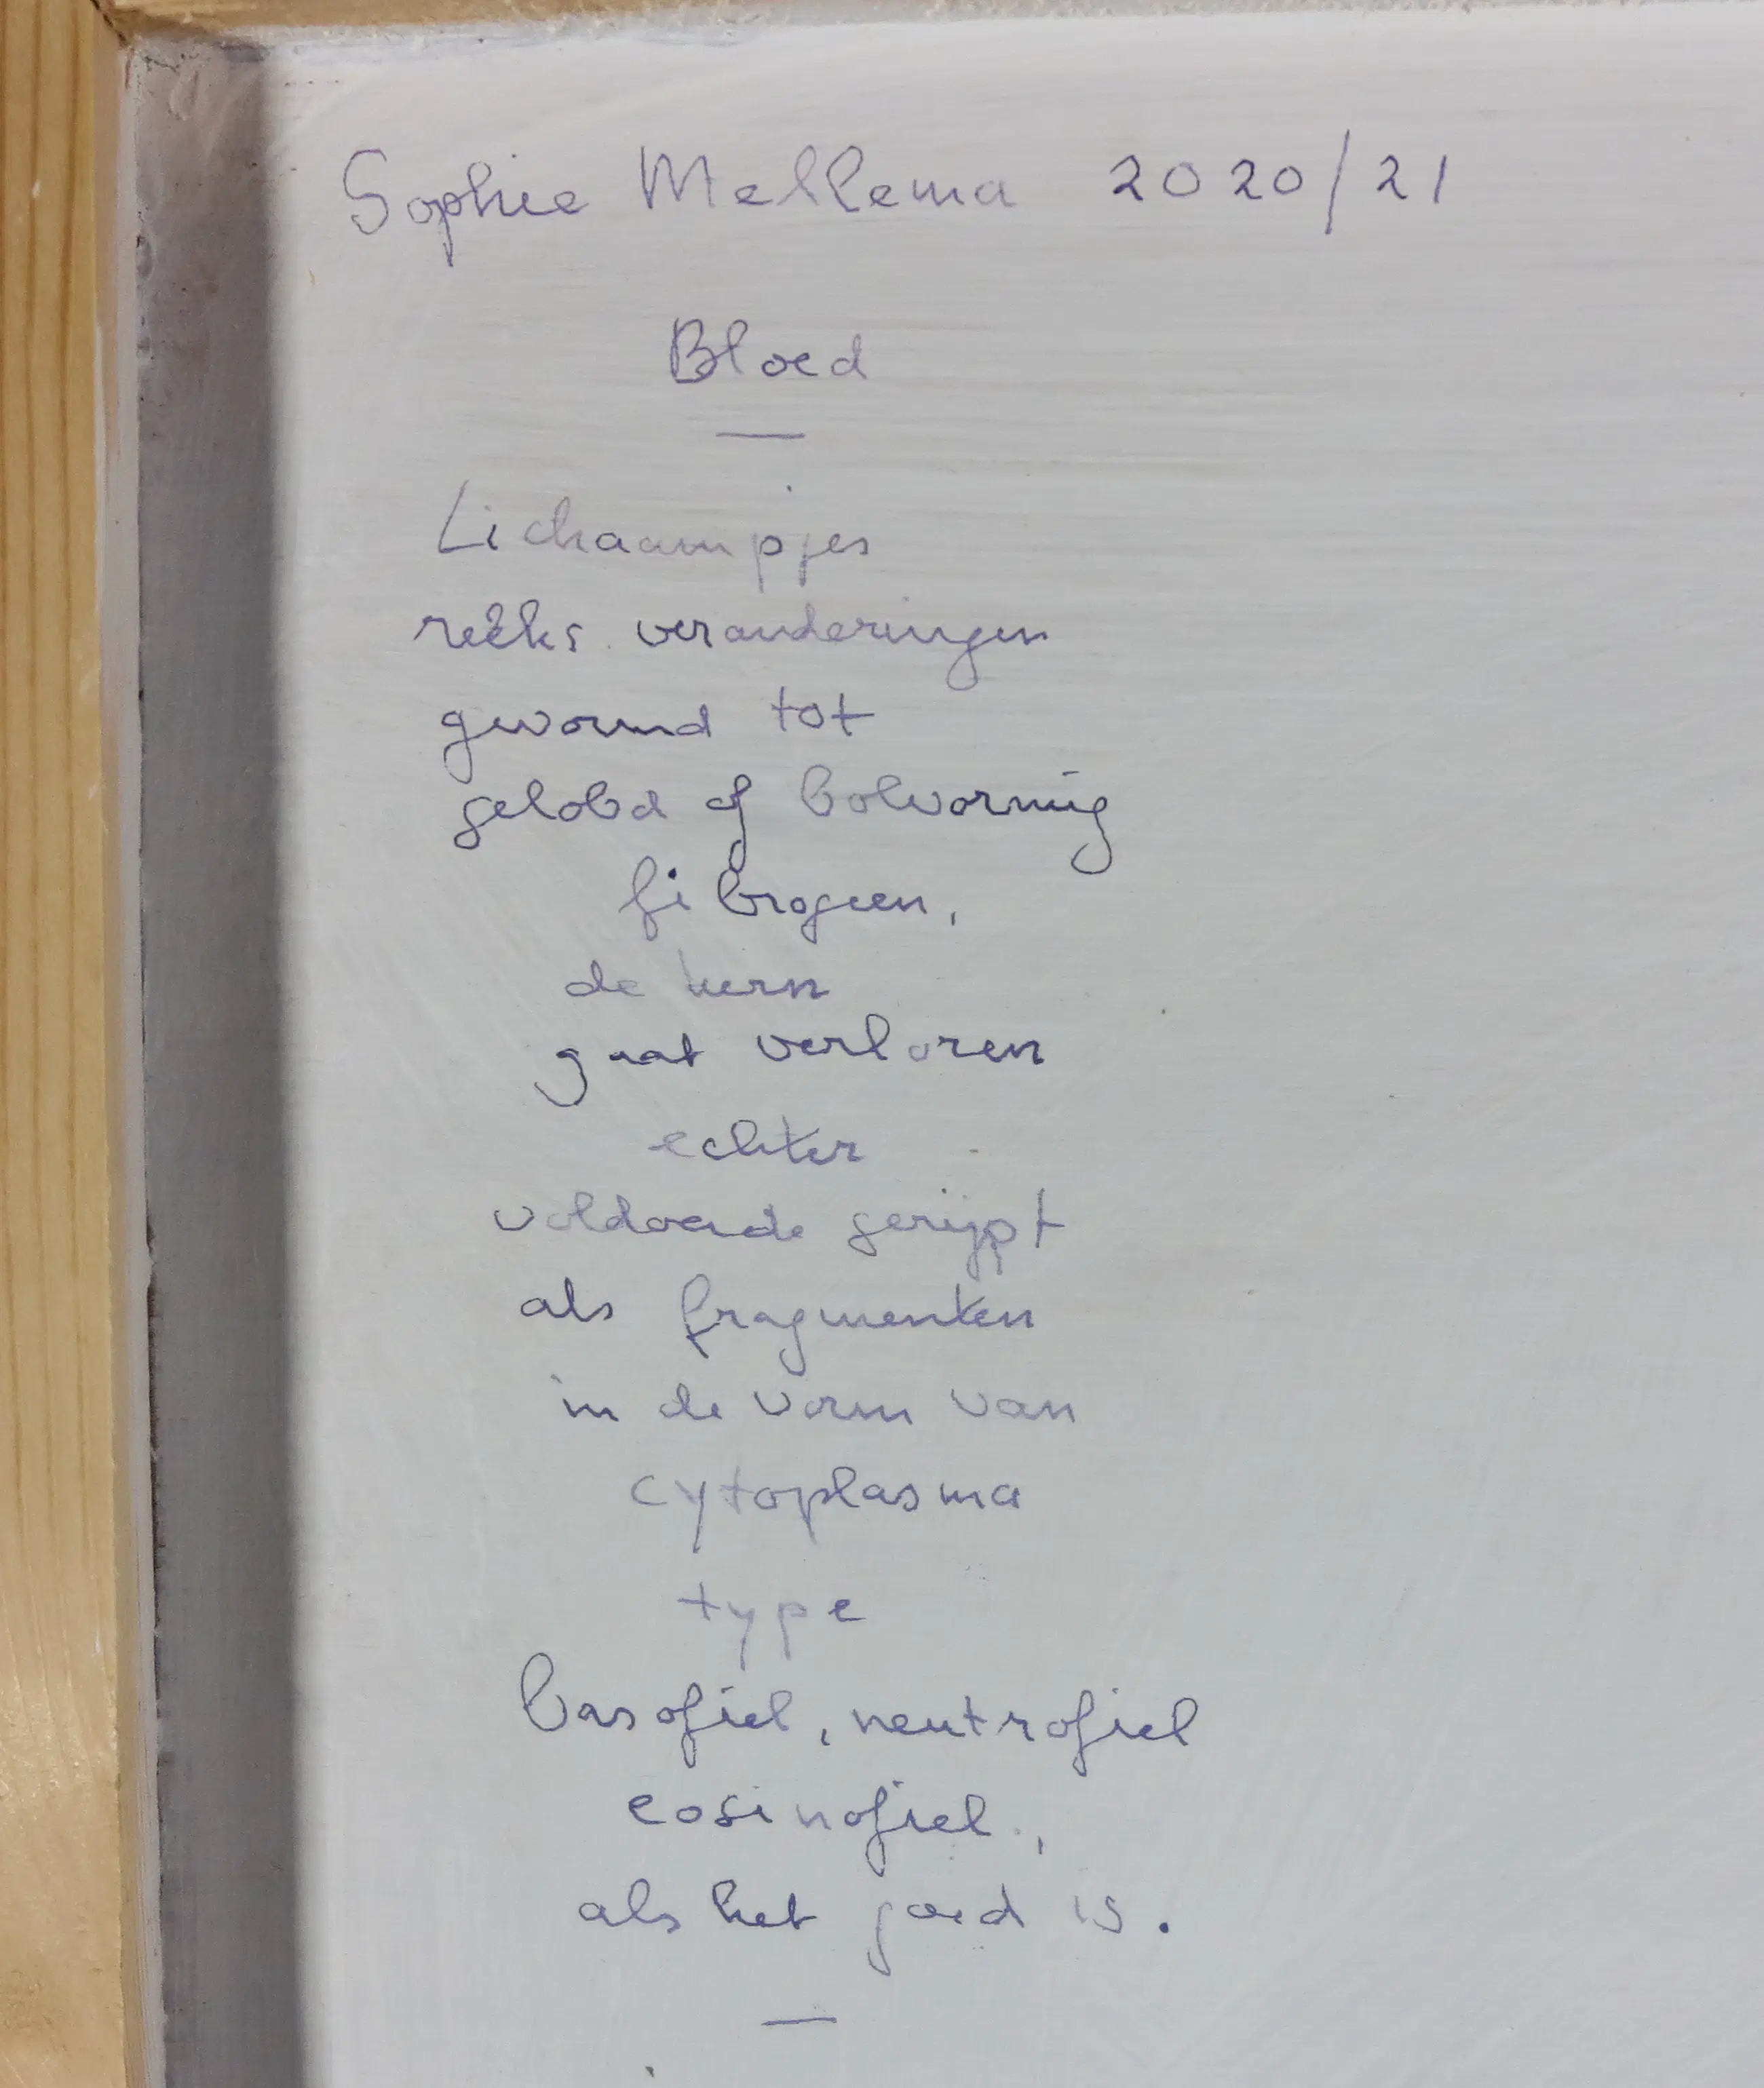 Sophie Mellema 2020/21
Bloed
—
Lichaampjes
reeks veranderingen
gevormd tot
gelobd of bolvormig
fibrogeen,
de kern
gaat verloren
echter
voldoende gerijpt
als fragmenten
in de vorm van
cytoplasma
type
basofiel, neutrofiel
eosinofiel,
als het goed is.
—